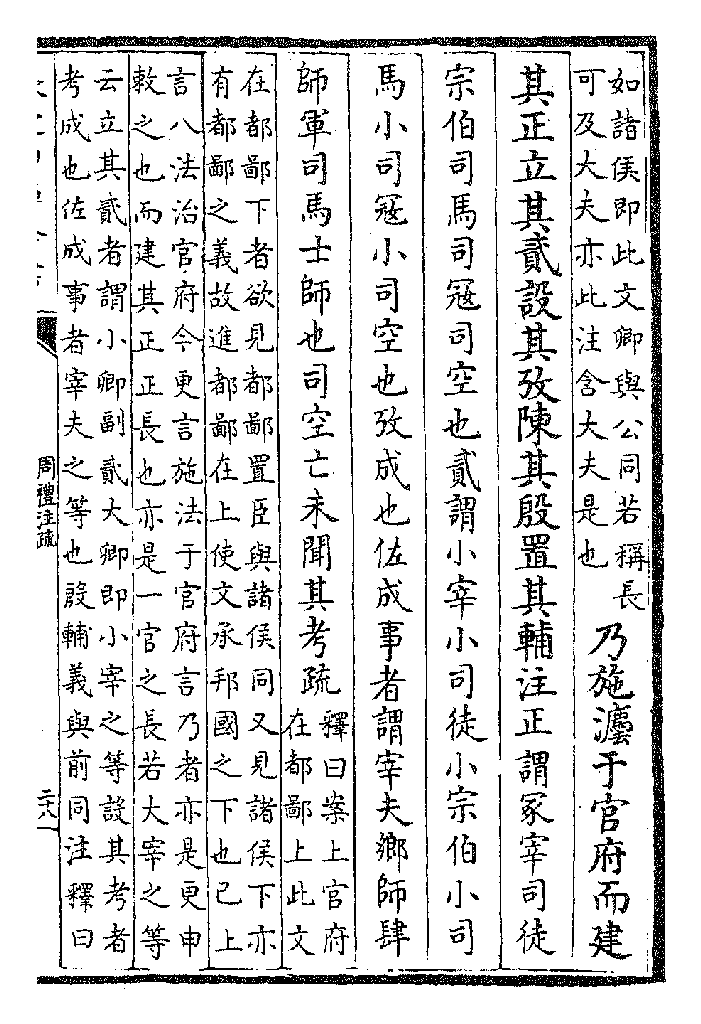 如諸侯即此文卿與公同若稱長
可及大夫亦此注含大夫是也
乃施灋于官府而建
其正立其貳設其攷陳其殷置其輔注正謂冢宰司徒
宗伯司馬司冦司空也貳謂小宰小司徒小宗伯小司
馬小司冦小司空也攷成也佐成事者謂宰夫鄉師肆
師軍司馬士師也司空亡未聞其考疏
釋曰案上官府
在都鄙上此文
在都鄙下者欲見都鄙置臣與諸侯同又見諸侯下亦
有都鄙之義故進都鄙在上使文承邦國之下也已上
言八法治官府今更言施法于官府言乃者亦是更申
敕之也而建其正正長也亦是一官之長若大宰之等
云立其貳者謂小卿副貳大卿即小宰之等設其考者
考成也佐成事者宰夫之等也殷輔義與前同注釋曰
周禮注疏
二十八